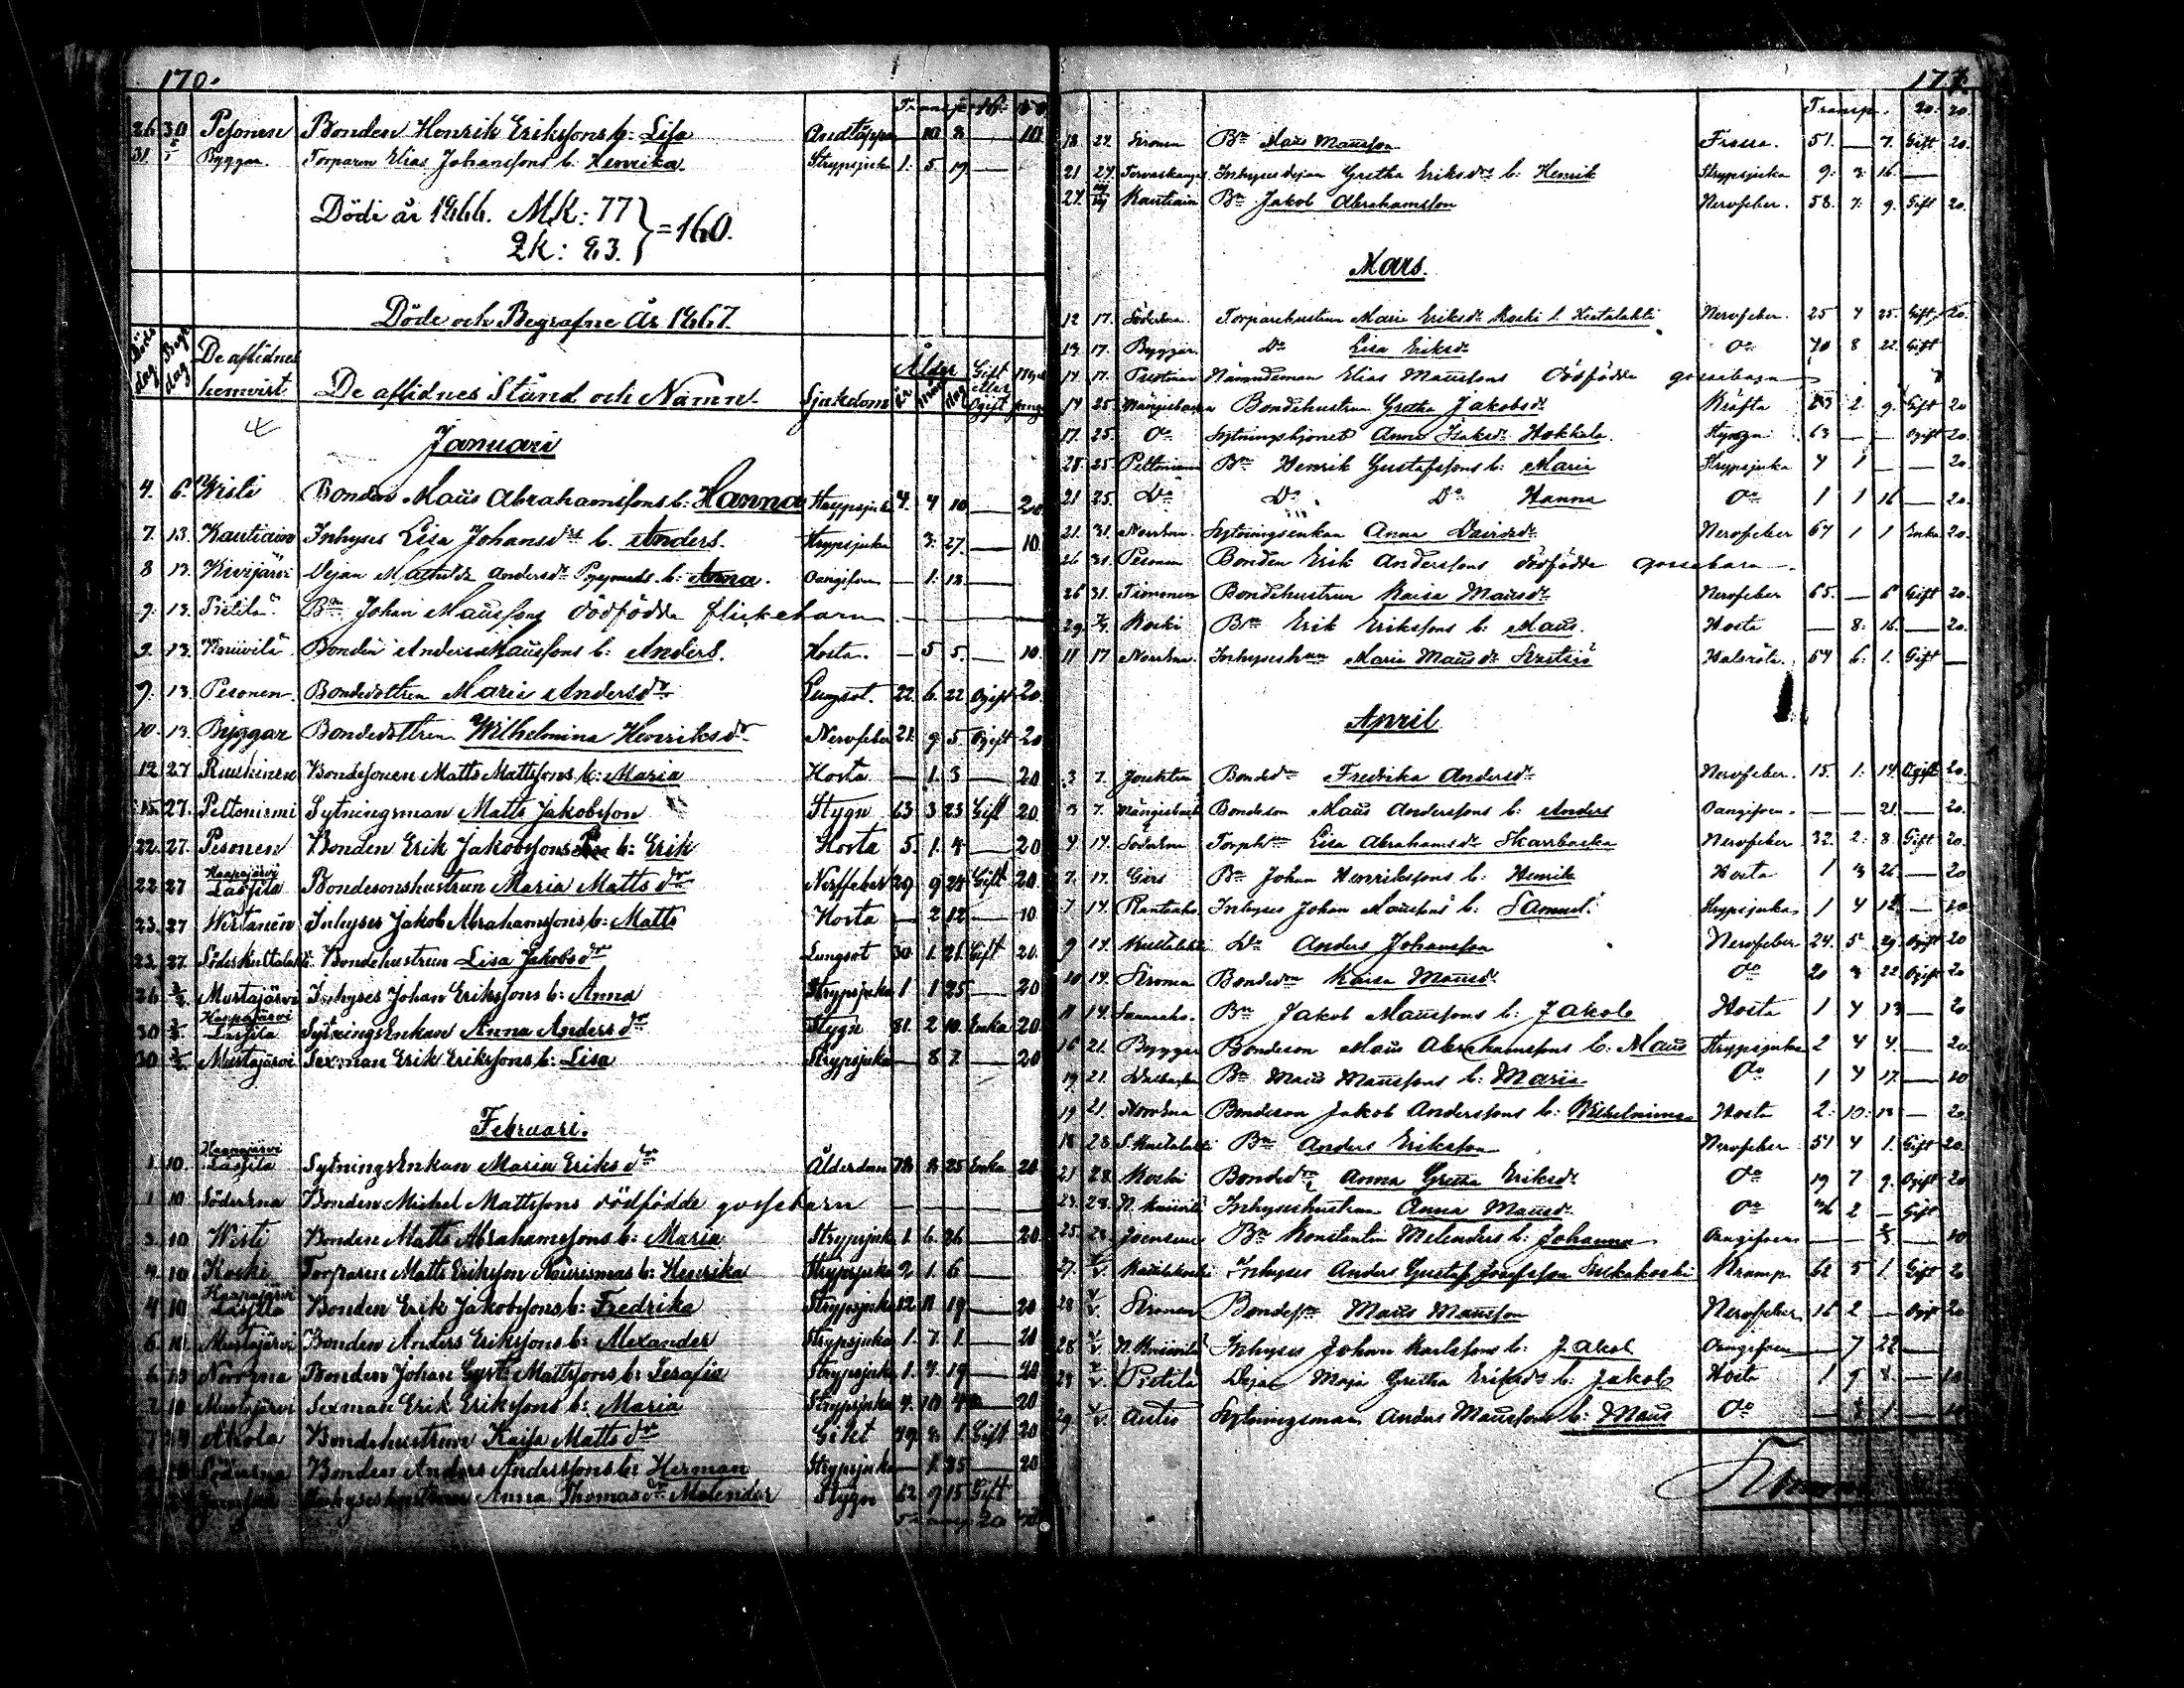 170.
26. 30 Pesonen Bonden Henrik Erikssons b: Lisa Andtäppa 10 8 — 10
31. Byggar. Torparen Elias Johanssons b: Henrika. Strypsjuka 1. 5 19 —
Döde år 1866. MK: 77
QK: 83. } = 160.
Döde och Begrafne År 1867.
Döds dag Begr dag De aflidnes hemvist De aflidnes Stånd och Namn. Sjukdom Ålder Gift eller Ogift
Januari
4. 6. Wisti Bonden Maũs Abrahamssons b: Hanna Strypsjuka 4. 4 10 — 20
7. 13. Kautiain Inhyses Lisa Johansdr b. Anders. Strypsjuka 3. 27 — 10.
8 13. Kivijärvi Pejan Mathilda Andersdr b: Anna. Oangifven — 1. 18. —
9. 13. Pietilä Bn Johan Maũssons dödfödda flickebarn
9. 13. Bonden Anders Maũssons b: Anders. Hosta. — 5 5. — 10.
9. 13. Pesonen. Bondedottren Maria Andersdr Lungsot. 22. 6. 22 Ogift 20.
10. 13. Byggar Bondedottren Wilhelmina Henriksdr Nervfeber 21. 9. 5. Ogift 20
12 27 Ruuskinen Bondesonen Matts Mattssons b: Maria Hosta — 1. 3 — 20
15. 27. Peltoniemi Sytningsman Matts Jakobsson Stygn 63 3 23 Gift 20.
22. 27. Pesonen Bonden Erik Jakobssons b: Erik Hosta 5. 1. 4 — 20
22. 27 Haapajärvi Lassila Bondesonshustrun Maria Mattsdr Nerffeber 29 9 24 Gift 20.
23. 27 Wirtanen Inhyses Jakob Abrahamssons b: Matts Hosta — 2 12 — 10
23. 27. Bondehustrun Lisa Jakobsdr Lungsot 30 1. 21. Gift 20.
26 3/2 Mustajärvi Inhyses Johan Erikssons b: Anna Strypsjuka 1 1 25 — 20
30 3/2 Haapajärvi Lassila SytningsEnkan Anna Andersdr Stygn 81. 2 10. Enka 20.
30 3/2 Mustajärvi Sexman Erik Erikssons b: Lisa Strypsjuka — 8 7. — 20
Februari.
1. 10. Haapajärvi Lassila SytningsEnkan Maria Eriksdr Ålderdom 78 8 25 Enka 20
1. 10 Söderena Bonden Michel Mattssons dödfödde gossebarn
3. 10 Wisti Bonden Matts Abrahamssons b: Maria Strypsjuka 1 6. 26 — 20.
4. 10 Koski Torparen Matts Eriksson Naurismas b: Henrika Strypsjuka 2 1. 6 —
4 10 Haapajärvi Lassila Bonden Erik Jakobssons b: Fredrika Strypsjuka 12 11 19 — 20
6. 10. Mustajärvi Bonden Anders Erikssons b: Alexander Strypsjuka 1. 7. 1. — 20
6. 10 Norrena Bonden Johan Gust. Mattssons b: Serafia Strypsjuka 1. 4. 19 — 20
7. 10 Mustajärvi Sexman Erik Erikssons b: Maria Strypsjuka 4. 10 — 20
Ahola Bondehustrun Kaisa Mattsdr 49. 8. 1. Gift 20
Söderena Bonden Anders Anderssons b: Herman Strypsjuka — 1. 25 — 20
Inhyseshustrun Anna Thomasdr Melender Stygn 62 9 15 Gift
171.
Transp. 20. 20
18 24. Sironen Bn Maũs Maũsson Frossa. 51. — 7. Gift 20.
21 24. Tervaskangas Inhysespejan Gretha Eriksdr b: Henrik Strypsjuka 9. 3. 16. —
27. Kautiain Bn Jakob Abrahamsson Nervfeber. 58. 7. 9. Gift 20.
Mars.
12 17. Söderena. Torparehustrun Maria Eriksdr Koski Nervfeber. 25 4 25. Gift 20.
13. 17. Byggar. Do Lisa Eriksdr Do 40 8 22. Gift
14 17. Nämndeman Elias Maũssons dödfödda gossebarn
14 25. Bondehustrun Gretha Jakobsdr Kräfta 2. 9. Gift 20
17. 25. Do Sytningshjonet Anna Isaksdr Hokkala. Stygn. 63 — — Ogift 20.
28. 25 Peltoniemi Bn Henrik Gustafssons b: Maria Strypsjuka 4 1 — — 20.
21 25. Do Do Do Hanna Do 1 1 16 — 20.
21. 31. Norrena Sytningsenkan Anna Davidsdr Nervfeber 67 1 1 Enka 20.
26 31. Pesonen Bonden Erik Anderssons dödfödda gossebarn
26 31. Timonen Bondehustrun Kaisa Maũsdr Nervfeber 65. — 6 Gift 20.
29. 7/4. Koski Bn Erik Erikssons b: Maũs. Hosta — 8. 16. — 20.
11 17 Norrena. Inhyseshun Maria Maũsdr Halsröta. 54 6. 1. Gift —
April
3. 7. Bondedn Fredrika Andersdr Nervfeber. 15. 1. 14. Ogift 20.
3 7. Bondeson Maũs Anderssons b: Anders Oangifven. — — 21. — 20.
4 14. Söderena Lisa Abrahamsdr Skarrbacka Nervfeber 32. 2. 8 Gift 20.
7. 17. Girs Bn Johan Henrikssons b: Henrik Hosta 1 3 26. — 20
7 14. Rantaaho Inhyses Johan Maũssons b: Samuel. Strypsjuka 1 4 12. — 10
9 14. Do Anders Johansson Nervfeber 24. 5 29. Ogift 20
10 14. Sironen Bondedn Kaisa Maũsdr Do 20 3 22. Ogift 20
11 14. Bn Jakob Maũssons b: Jakob Hosta 1 4 13 — 20
16 21. Byggar Bondeson Maũs Abrahamssons b: Maũs Strypsjuka 2 4 4. — 20.
19 21. Bn Maũs Maũssons b: Maria Do 1 4 17. — 10
19 21. Norrena Bondeson Jakob Anderssons b: Wilhelmina Hosta 2: 10: 13 — 20.
18 28 Bn Anders Eriksson Nervfeber 51 4 1. Gift 20.
21 28 Koski Bondedn Anna Gretha Eriksdr Do 19 7 9. Ogift 20
23. 28. Inhyseshustrun Anna Maũsdr Do 2 — Gift
25. 28 Joensuu Bn Konstantin Melenders b: Johanna Oangifven — — — 10
27. Inhyses Anders Gustaf Josefsson Kramp 62 5 1. Gift 20
28 Sironen Maũs Maũsson Nervfeber 16 2 — Ogift 20
28 Inhyses Johan Karlssons b: Jakob Oangifven — 7 22 —
28 Pietilä Maja Gretha Eriksdr b: Jakob Hosta 1 9 8 — 10
29. Autio Sytningsman Anders Maũssons b: Maũs Do